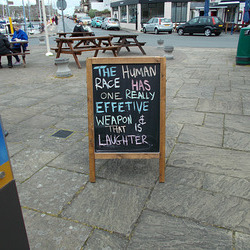 THE HUMAN
RACE HAS
ONE REALLY
EFFETIVE
WEAPON &
THAT IS
LAUGHTER